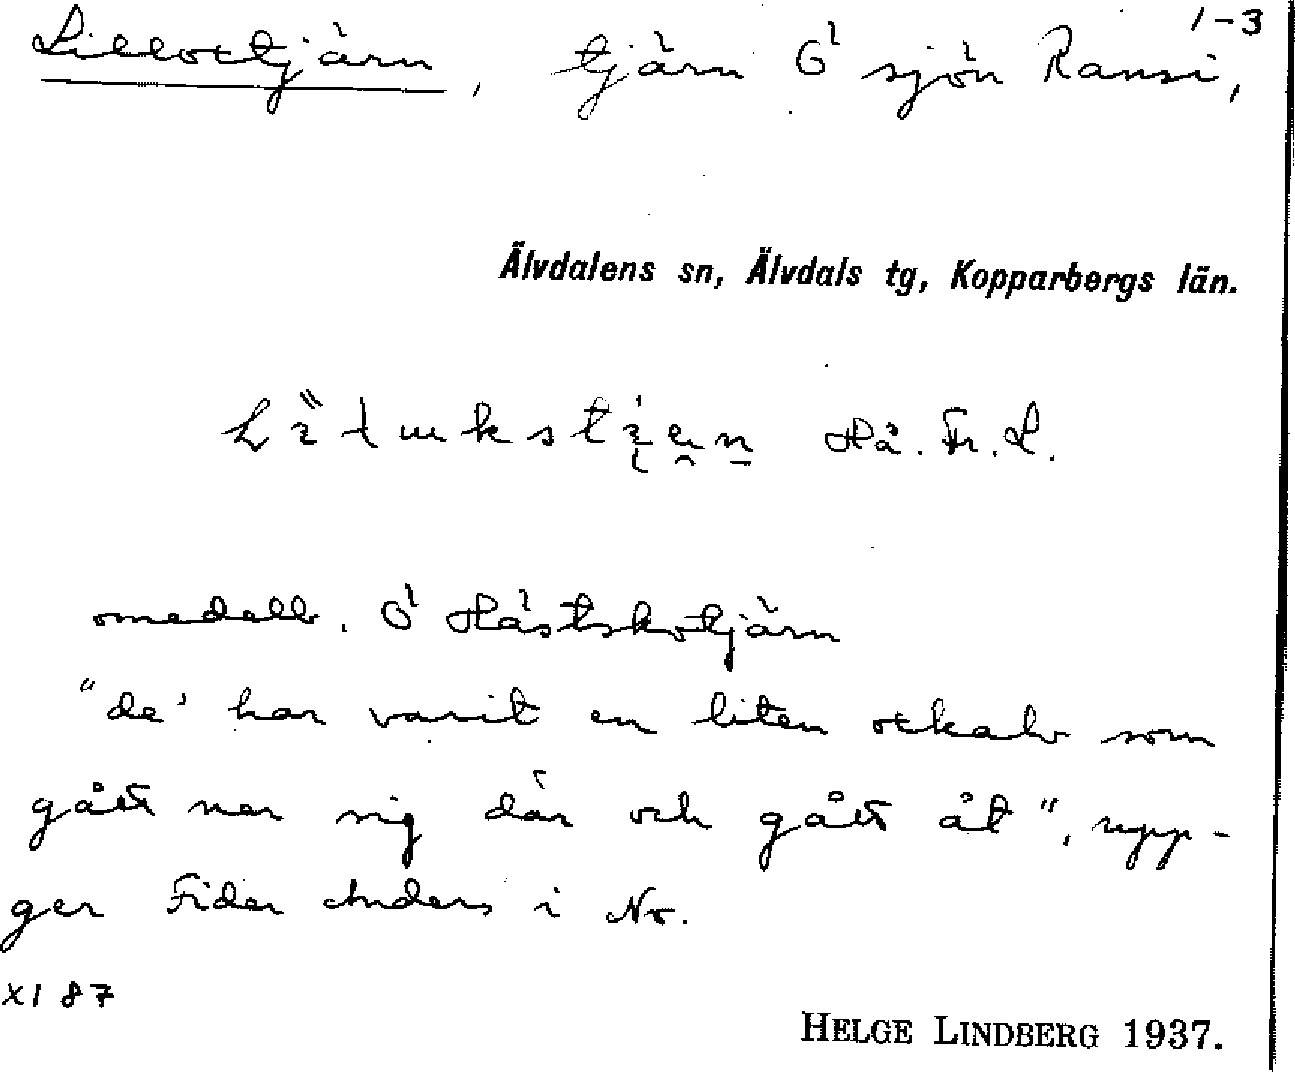 1-3
Lilloxtjärn, tjärn Ö sjön Ransi,
Älvdalens sn, Älvdals tg, Kopparbergs län.
Hå. Fr. L.
omedelb. Ö Hästskotjärn
"de' har varit en liten oxkalv som
gått ner sig där och gått åt", upp-
ger Fider Anders i No.
XI 87
HELGE LINDBERG 1937.